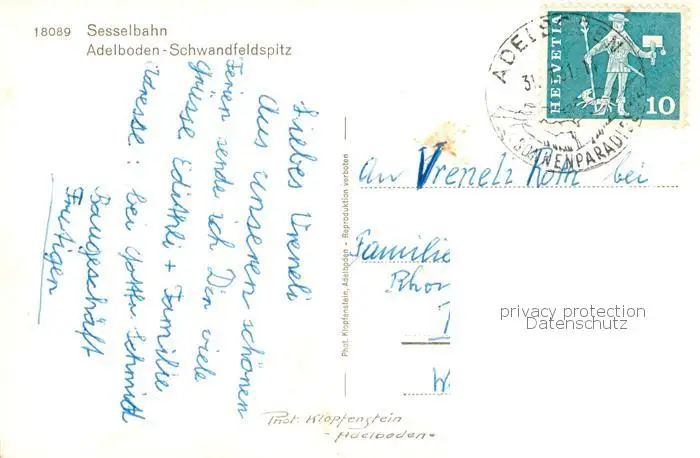 18089 Sesselbahn
Adelboden - Schwandfeldspitz
Liebes Vreneli
Aus unseren schönen
Ferien sende ich Dir viele
Grüsse Edithli + Familie
Adresse: bei Gottl. Schmid
Baugeschäft
Frutigen
Phot. Klopfenstein, Adelboden - Reproduktion verboten
HELVETIA
10
ADELBODEN
SONNENPARADIES
An Vreneli Roth bei
Familie
privacy protection
Datenschutz
Phot. Klopfenstein
- Adelboden -